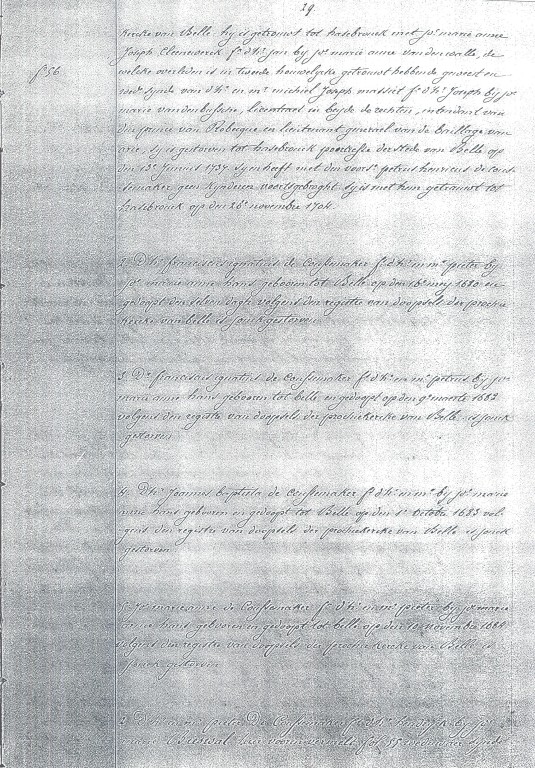 19.
kercke van Belle hy is getrouwt tot hasebrouck met jo.e marie anne
Joseph Cleenewerck f.a d'h.r Jan by jo.e marie anne vandenwalle, de
welcke overleden is in tweede houwelycke getrouwt hebbende geweest en
f.o 56
wed.e synde van d'h.r en m.r michiel Joseph massiet f.s d'h.r Joseph by jo.e
marie vandenbussche, licentiaet in beyde de rechten, intendant van
den prince van Robecque en lieutenant generael van de Bailliage van
arie, sy is gestorven tot hasebrouck poorteresse der stede van Belle op
den 13.e Januarii 1737 sy en heeft met den voors. petrus henricus de Cous-
semaker geen kynderen voortsgebraght sy is met hem getrouwt tot
hasebrouck op den 26.e november 1704.
2. D'h.r franciscus ignatius de Coussemaker f.s d'h.r en m.r pieter by
jo.e marie anne hans geboren tot Belle op den 16.e mey 1680 en
gedoopt den selven daghe volgens den register van doopsels der prochie
kercke van belle is jonck gestorven
3. D'h.r franciscus ignatius de Coussemaker f.s d'h.r en m.r petrus by jo.e
marie anne hans geboren tot belle en gedoopt op den 9.e maerte 1682
volgens den register van doopsels der prochiekercke van Belle is jonck
gestorven
4. D'h.r Joannes baptista de Coussemaker f.s d'h.r en m.r by jo.e marie
anne hans geboren en gedoopt tot Belle op den 1.e October 1683 vol-
gens den register van doopsels der prochiekercke van Belle is jonck
gestorven
5. Jo.e marie anne de Coussemaker f.a d'h.r en m.r pieter by jo.e marie
anne hans geboren en gedoopt tot belle op den 10 november 1684
volgens den register van doopsels der prochiekercke van Belle is
jonck gestorven
D'heer en m.r pieter De Coussemaker f.s d'h.r by jo.e
hier vooren vermelt fol. 55 synde